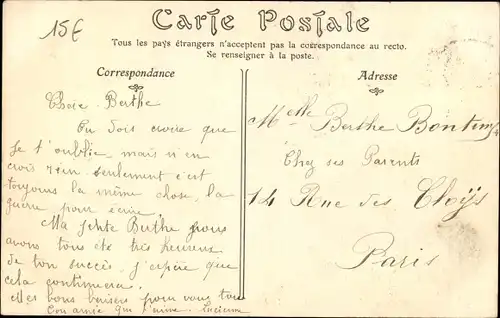 15€
Carte Postale
Tous les pays étrangers n'acceptent pas la correspondance au recto.
Se renseigner à la poste.
Correspondance
Chère Berthe
Tu dois croire que
je t'oublie, mais n'en
crois rien seulement c'est
toujours la même chose, la
guerre pour écrire.
Ma petite Berthe nous
avons tous été très heureux
de ton succès, j'espère que
cela continuera.
Mes bons baisers pour vous tous
Ton amie qui t'aime. Lucienne
Adresse
Melle Berthe
Chez ses Parents
14 Rue des Cloÿs
Paris